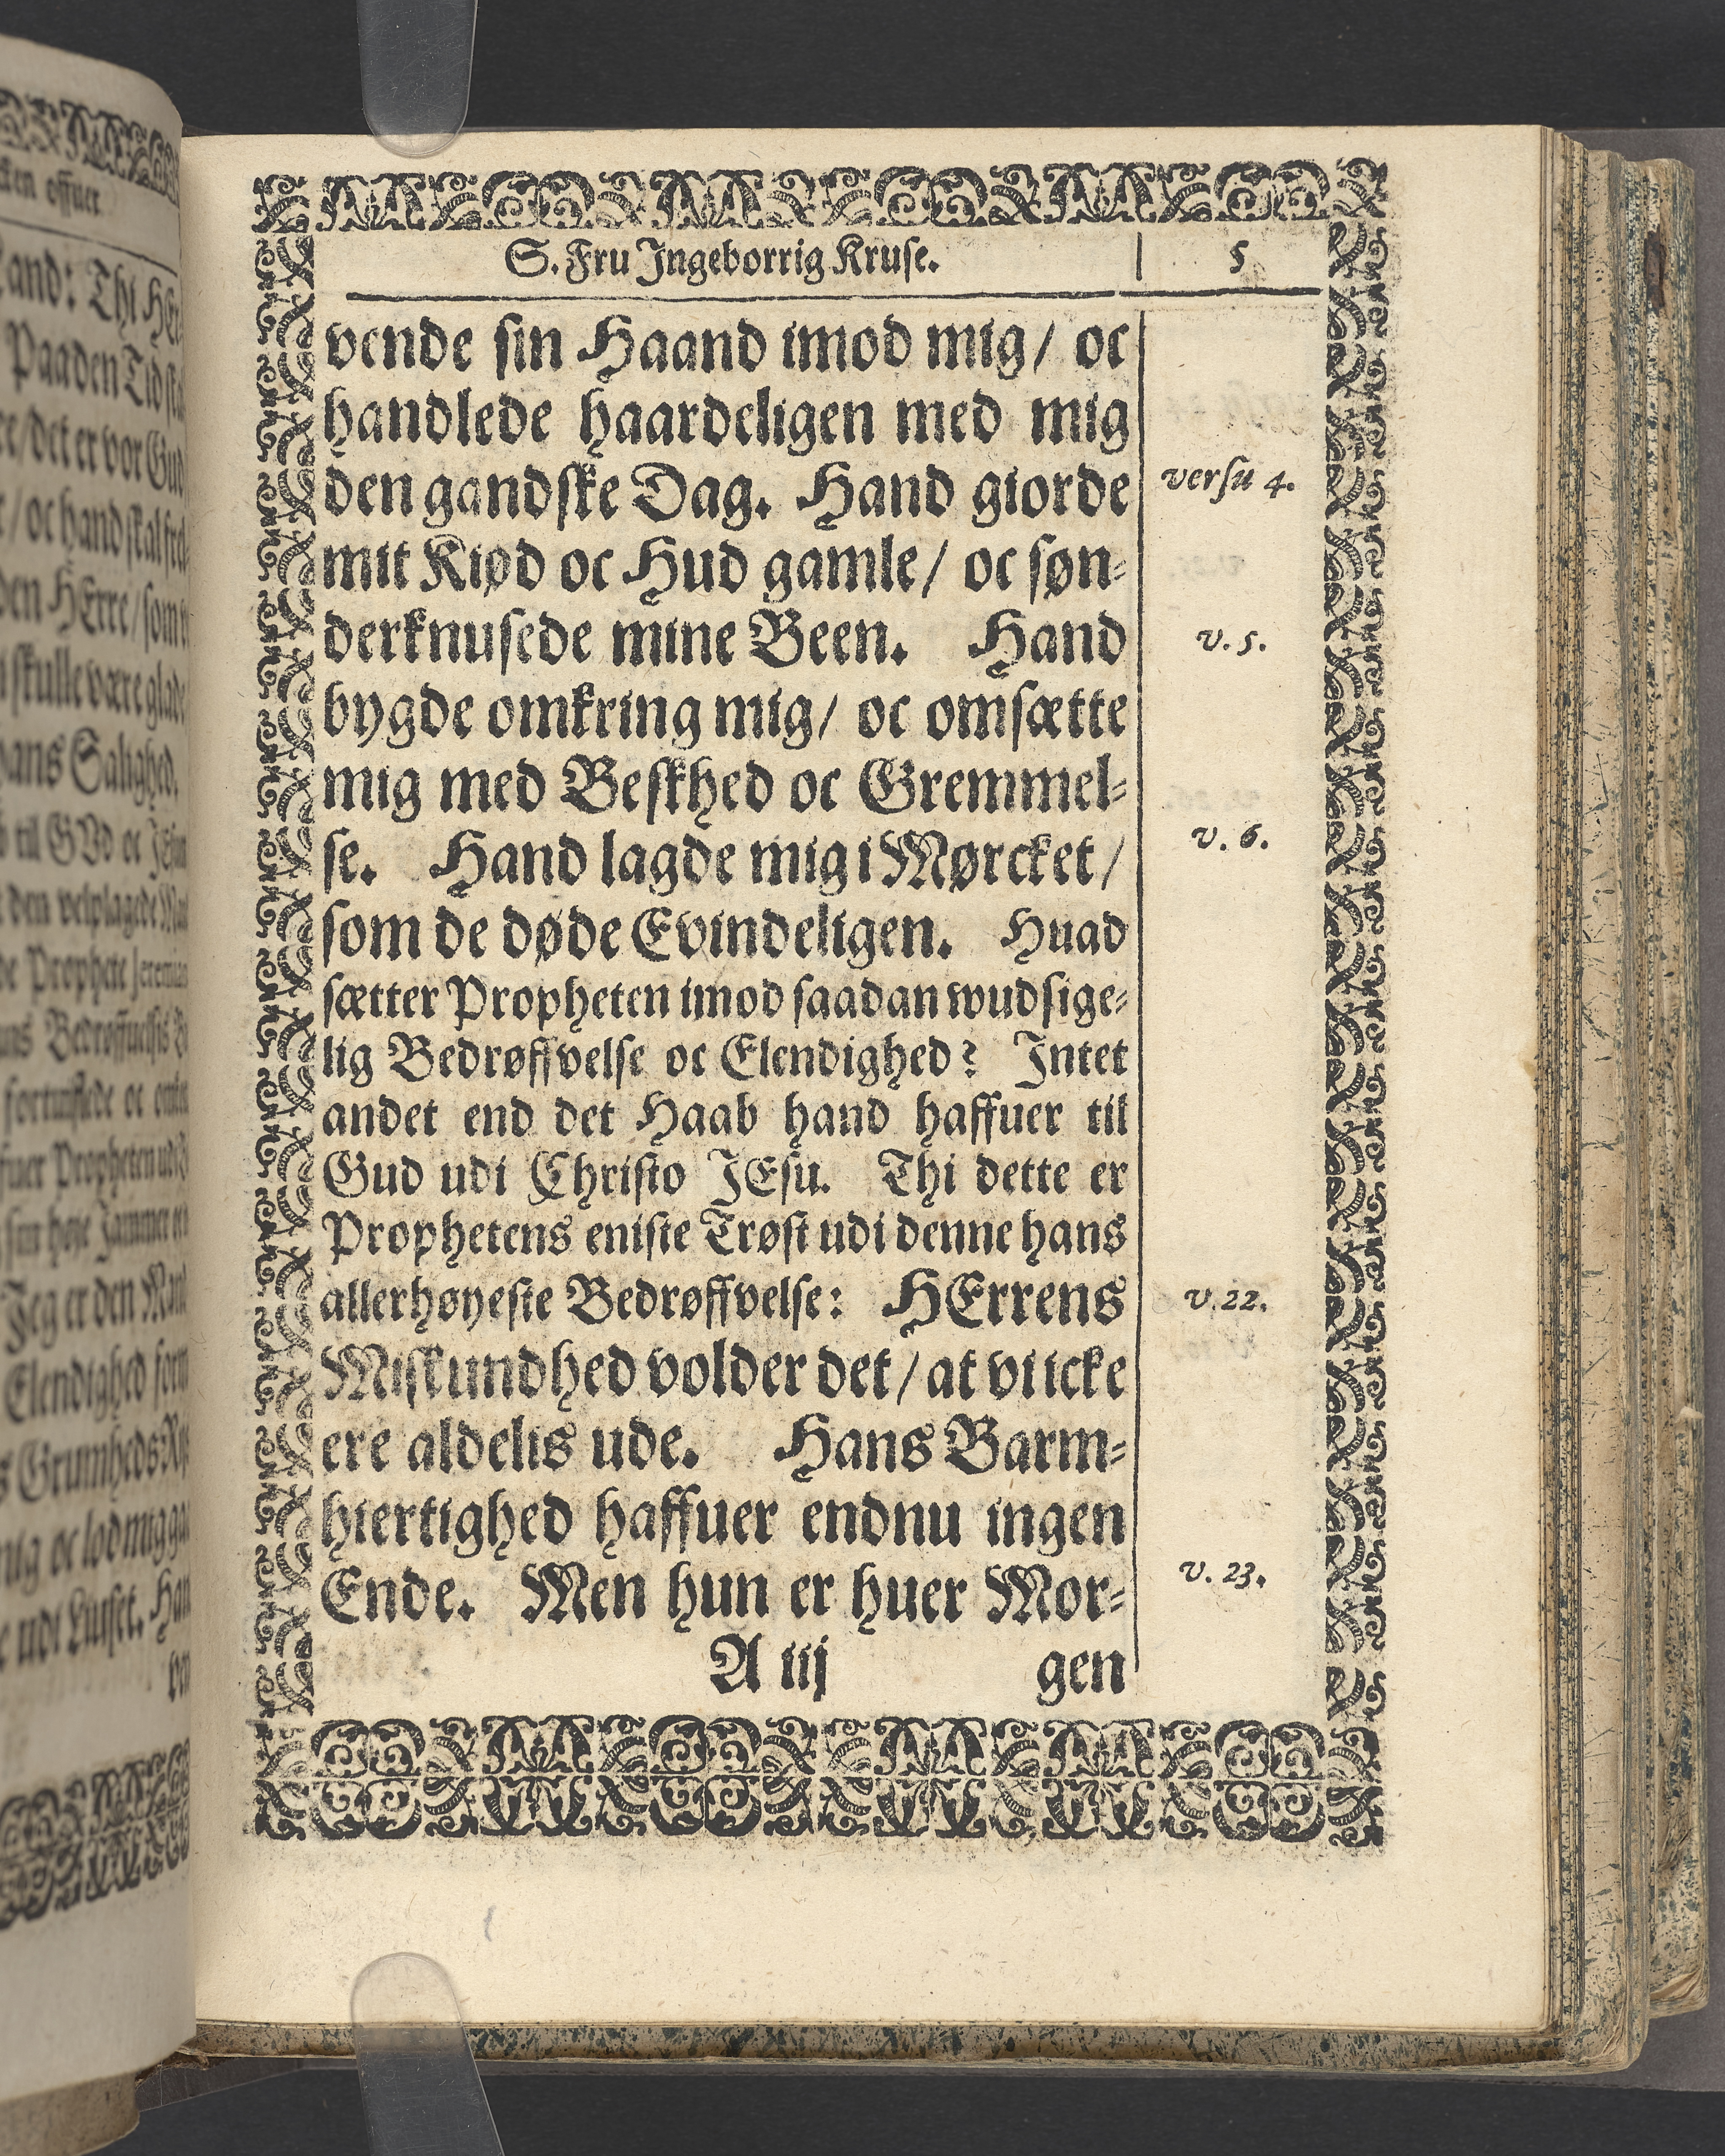 S. Fru Jngeborrig Kruse. 5
vende sin Haand imod mig/ oc
handlede haardeligen med mig
den gandske Dag. Hand giorde versu 4.
mit Kiød oc Hud gamle/ oc søn-
derknusede mine Been. Hand v. 5.
bygde omkring mig/ oc omsætte
mig med Beskhed oc Gremmel-
se. Hand lagde mig i Mørcket/ v. 6.
som de døde Evindeligen. Huad
sætter Propheten imod saadan wudsige-
lig Bedrøffvelse oc Elendighed? Jntet
andet end det Haab hand haffuer til
Gud udi Christo JEsu. Thi dette er
Prophetens eniste Trøst udi denne hans
allerhøyeste Bedrøffvelse: HErrens v. 22.
Miskundhed volder det/ at vi icke
ere aldelis ude. Hans Barm-
hiertighed haffuer endnu ingen
Ende. Men hun er huer Mor- v. 23.
A iij gen